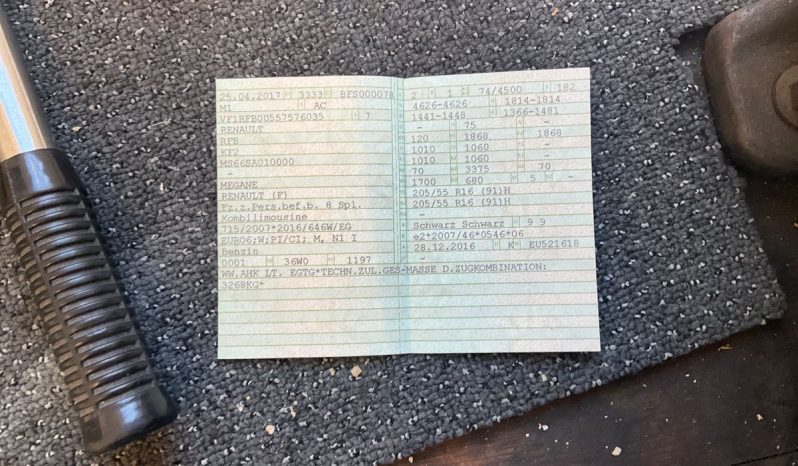 25.04.2017 3333 BFS000078
M1 AC
VF1RFB00557576035 7
RENAULT
RFB
KF2
MS66SA010000
-
MEGANE
RENAULT (F)
Fz.z.Pers.bef.b. 8 Spl.
Kombilimousine
715/2007*2016/646W/EG
EURO6;W;PI/CI; M, N1 I
Benzin
0001 36W0 1197
2 1 74/4500 182
4626-4626 1814-1814
1441-1448 1366-1481
- 75 -
120 1868 1868
1010 1060 -
1010 1060 -
70 3375 70
1700 680 5 -
205/55 R16 (91)H
205/55 R16 (91)H
-
Schwarz Schwarz 9 9
e2*2007/46*0546*06
28.12.2016 K EU521618
-
WW.AHK LT. EGTG*TECHN.ZUL.GES-MASSE D.ZUGKOMBINATION:
3268KG*